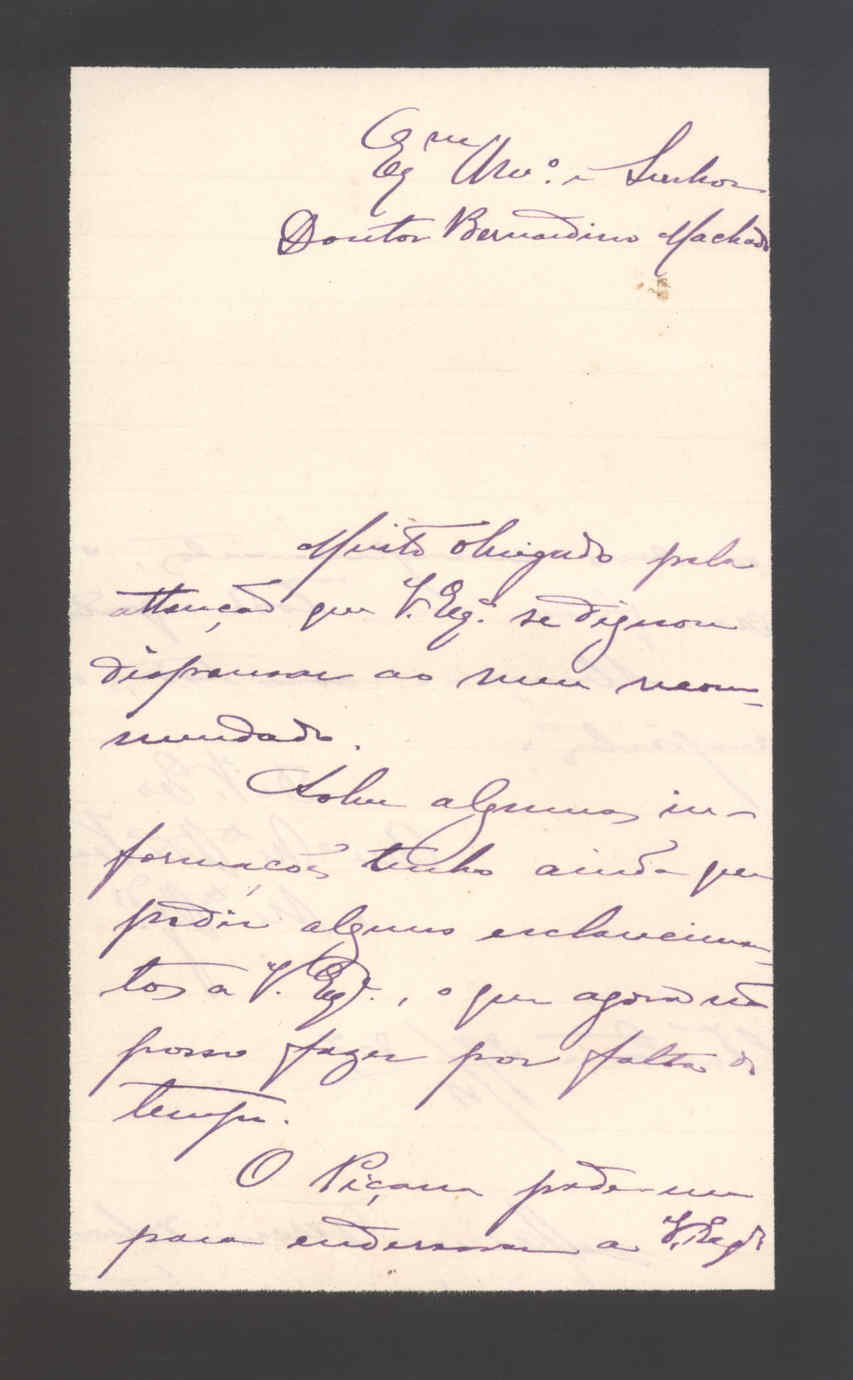 Exmo Amo. e Senhor
Doutor Bernardino Machado
Muito obrigado pela
attenção que V. Exa. se dignou
dispensar ao meu recom-
mendado.
Sobre algumas in-
formacões tenho ainda que
pedir alguns esclarecimen-
tos a V. Exa., o que agora não
posso fazer por falta de
tempo.
O Piçarra pede-me
para enderessar a V. Exa.